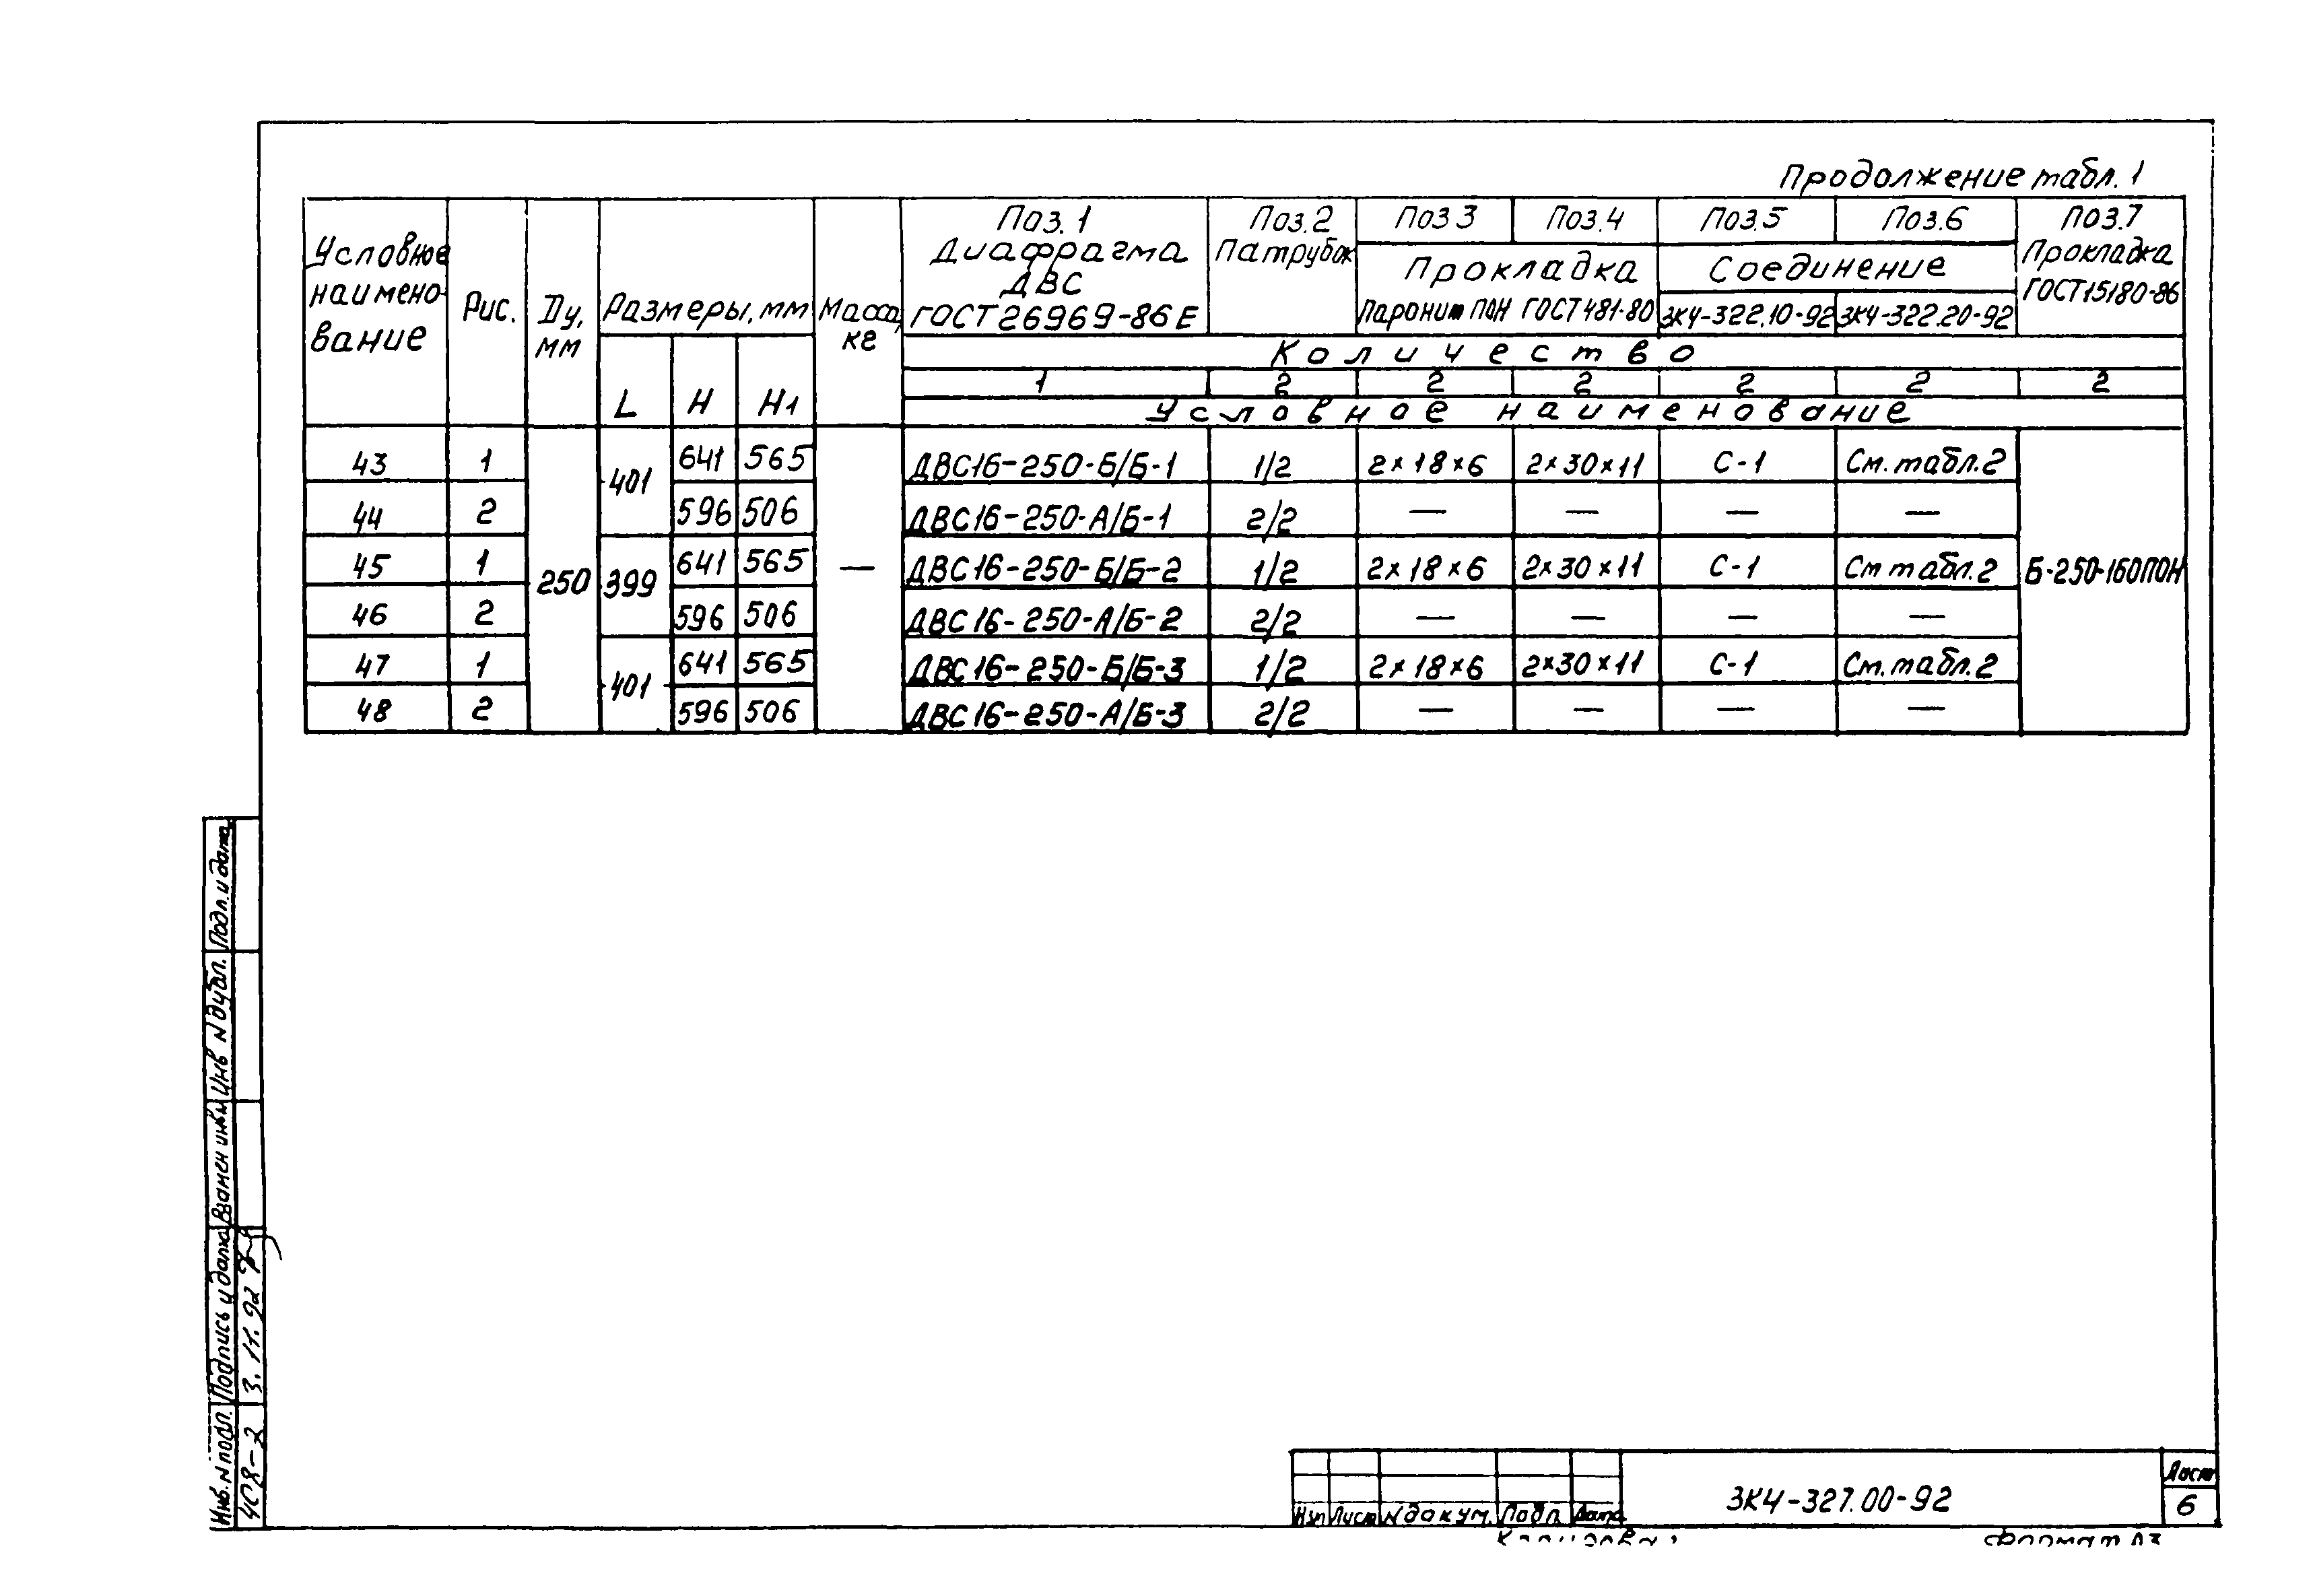 Продолжение табл. 1
Условное наимено- вание | Рис. | Dу, мм | Размеры, мм | Масса, кг | Поз. 1 Диафрагма ДВС ГОСТ 26969-86Е | Поз. 2 Патрубок | Поз 3 | Поз. 4 | Поз. 5 | Поз. 6 | Поз. 7 Прокладка ГОСТ 15180-86
Прокладка | Соединение
Паронит ПОН ГОСТ 481-80 | ЗК4-322.10-92 | ЗК4-322.20-92
Количество
L | H | H1 | 1 | 2 | 2 | 2 | 2 | 2 | 2
Условное наименование
43 | 1 | 250 | 401 | 641 | 565 | — | ДВС16-250-Б/Б-1 | 1/2 | 2×18×6 | 2×30×11 | С-1 | См. табл. 2 | Б-250-160ПОН
44 | 2 | 596 | 506 | ДВС16-250-А/Б-1 | 2/2 | — | — | — | —
45 | 1 | 399 | 641 | 565 | ДВС16-250-Б/Б-2 | 1/2 | 2×18×6 | 2×30×11 | С-1 | См табл. 2
46 | 2 | 596 | 506 | ДВС16-250-А/Б-2 | 2/2 | — | — | — | —
47 | 1 | 401 | 641 | 565 | ДВС16-250-Б/Б-3 | 1/2 | 2×18×6 | 2×30×11 | С-1 | См. табл. 2
48 | 2 | 596 | 506 | ДВС16-250-А/Б-3 | 2/2 | — | — | — | —
Подл. и дата
Инв N дубл.
Взамен инв N
Подпись и дата
3.11.92
Инв. N подл.
408-2
Изм Лист N докум. Подп. Дата
ЗК4-327.00-92
Лист
6
Формат А3